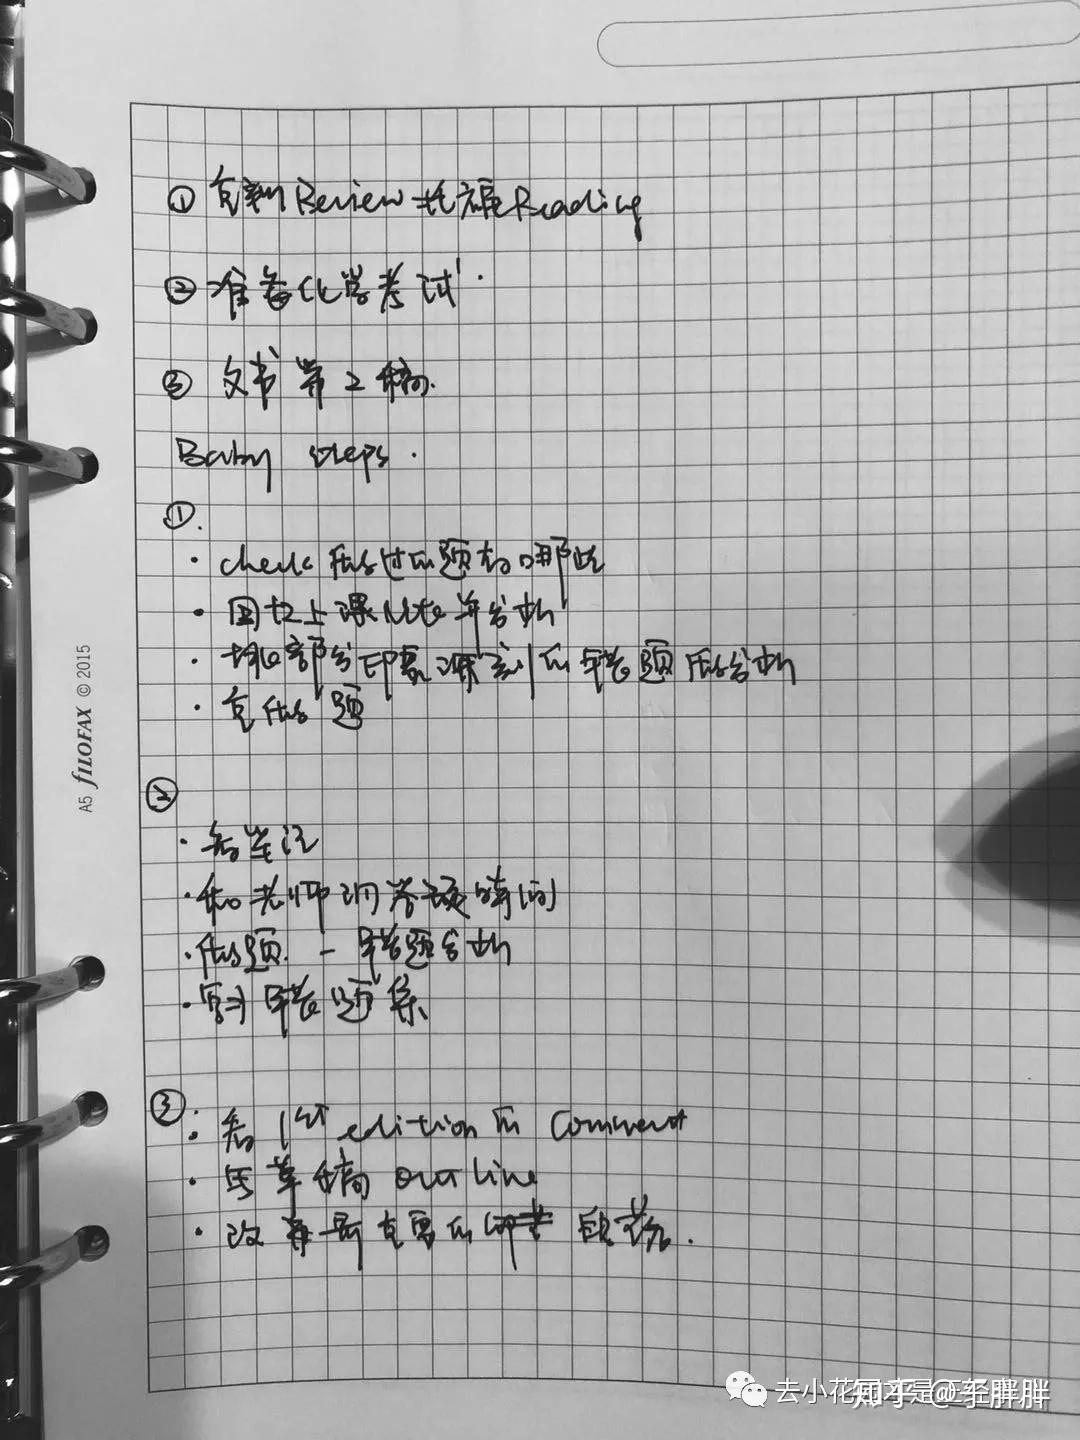 ① 复习Review托福Reading
② 准备化学考试.
③ 文书第2稿.
Baby steps.
①.
· check 做过的题有哪些
· 回忆上课Note并分析
· 挑部分印象深刻的错题做分析
· 做题
②
· 看笔记
· 和老师调答疑时间
· 做题. — 错题分析
· 复习错题集
③ · 看 1st edition 的 Comment
· 写草稿 outline
· 改 的 段落.
A5 fILOFAX © 2015
去小花园
知乎 @李胖胖